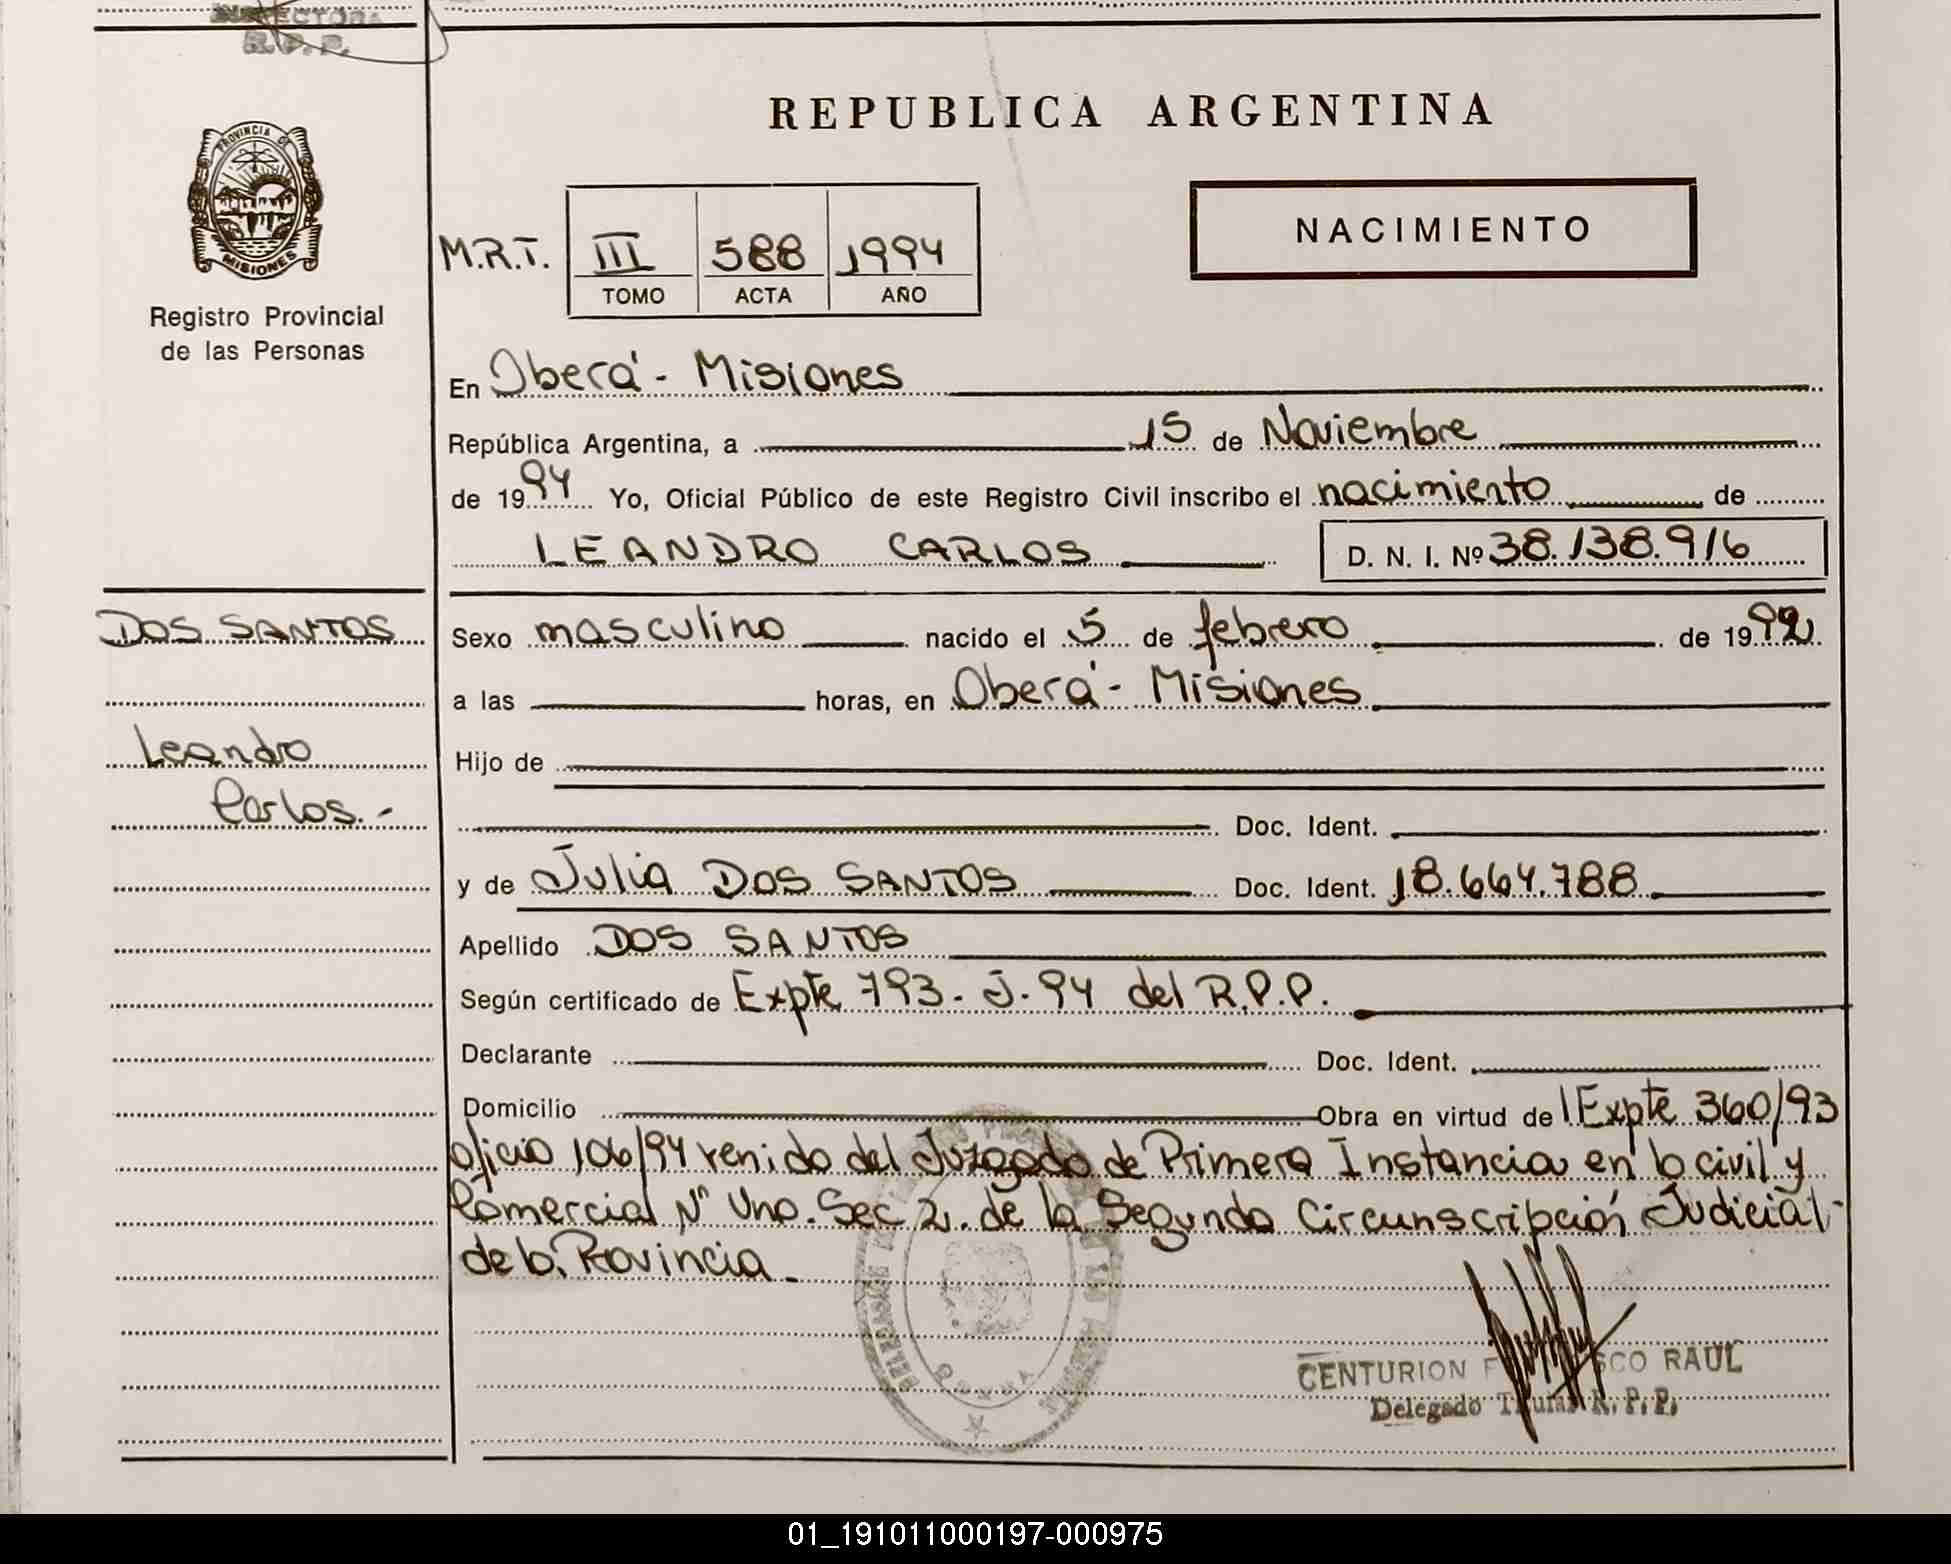 INSPECTORA
R.P.P.
PROVINCIA DE
MISIONES
Registro Provincial
de las Personas
REPUBLICA ARGENTINA
NACIMIENTO
M.R.T. III 588 1994
TOMO ACTA AÑO
En Oberá - Misiones
República Argentina, a 15 de Noviembre
de 1994 Yo, Oficial Público de este Registro Civil inscribo el nacimiento de
LEANDRO CARLOS D. N. I. Nº 38.138.916
DOS SANTOS
Leandro
Carlos.-
Sexo masculino nacido el 5 de febrero de 1992
a las horas, en Oberá - Misiones
Hijo de
Doc. Ident.
y de Julia DOS SANTOS Doc. Ident. 18.664.788
Apellido DOS SANTOS
Según certificado de Expte 793. J. 94 del R.P.P.
Declarante Doc. Ident.
Domicilio Obra en virtud del Expte 360/93
oficio 106/94 venido del Juzgado de Primera Instancia en lo civil y
Comercial Nº Uno. Sec 2. de la Segunda Circunscripción Judicial
de la Provincia.
CENTURION RAUL
Delegado Titular R. P. P.
01_191011000197-000975